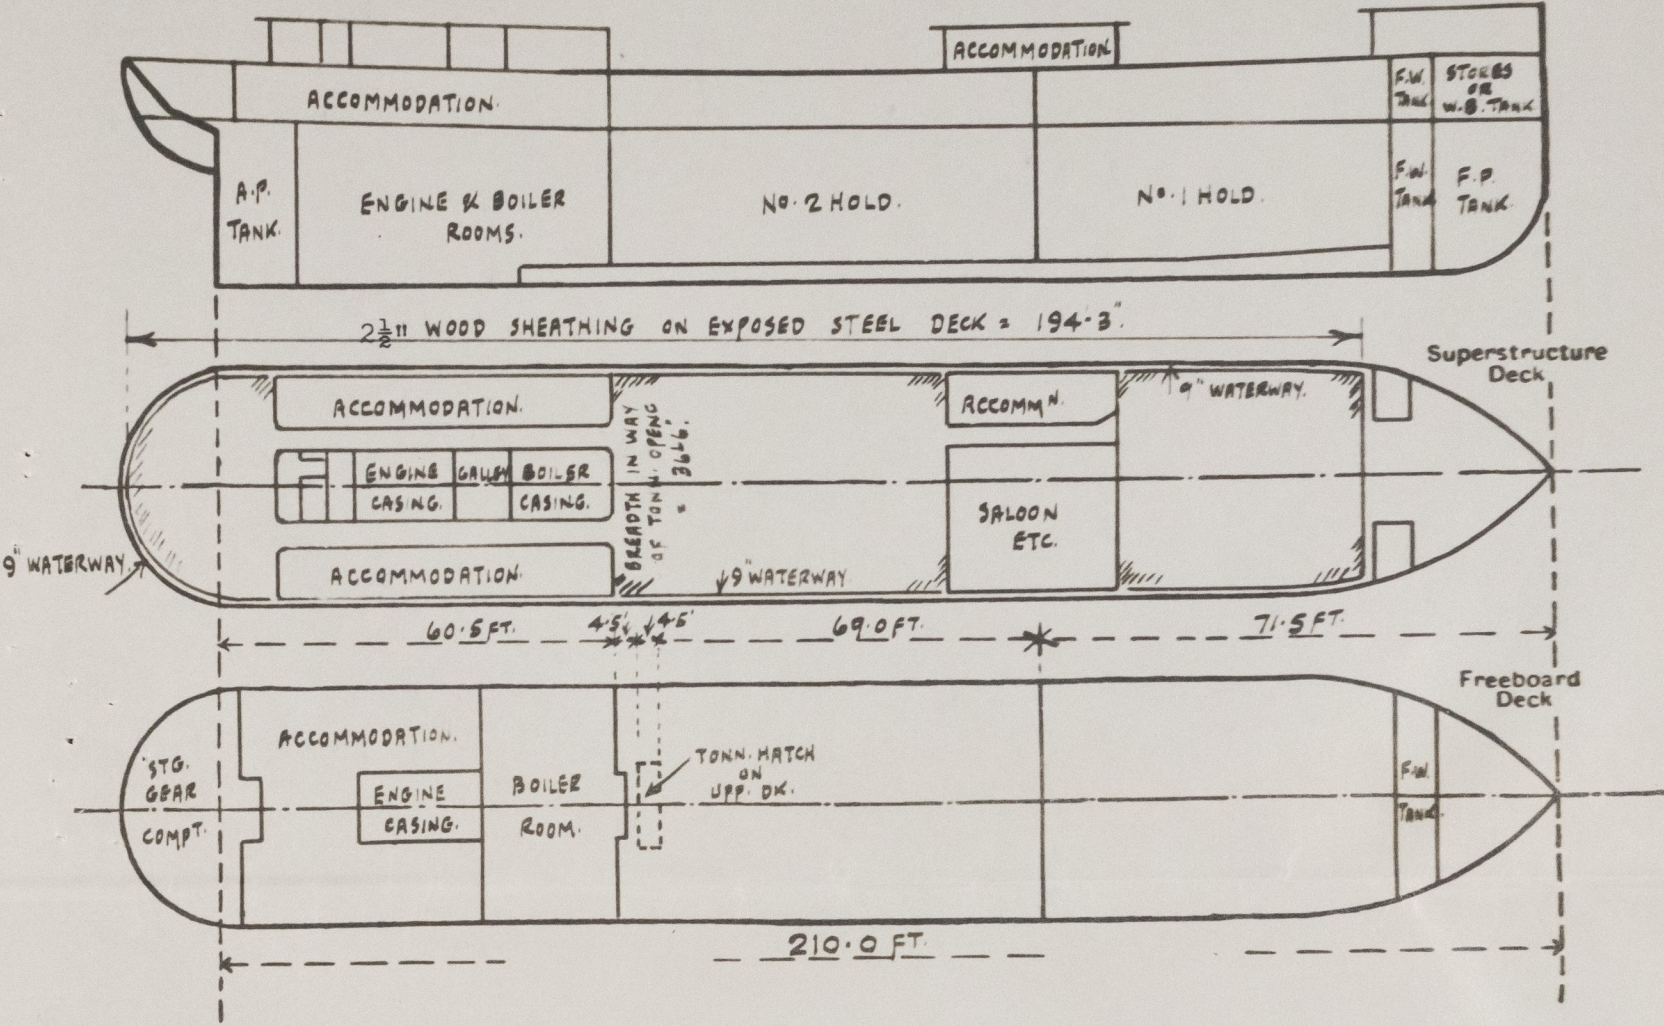 ACCOMMODATION
ACCOMMODATION.
F.W.
TANK
STORES
OR
W.B. TANK
A.P.
TANK.
ENGINE & BOILER
ROOMS.
No. 2 HOLD.
No. 1 HOLD.
F.W.
TANK
F.P.
TANK.
2½" WOOD SHEATHING ON EXPOSED STEEL DECK = 194'-3".
Superstructure
Deck
ACCOMMODATION.
ACCOMMN.
9" WATERWAY.
ENGINE
CASING.
GALLEY
BOILER
CASING.
BREADTH IN WAY
OF TONN. OPENG
= 36'-6".
SALOON
ETC.
9" WATERWAY.
ACCOMMODATION.
9" WATERWAY
60.5 FT.
4.5'
4.5'
69.0 FT.
71.5 FT.
Freeboard
Deck
STG.
GEAR
COMPT.
ACCOMMODATION.
ENGINE
CASING.
BOILER
ROOM.
TONN. HATCH
ON
UPP. DK.
F.W.
TANK
210.0 FT.